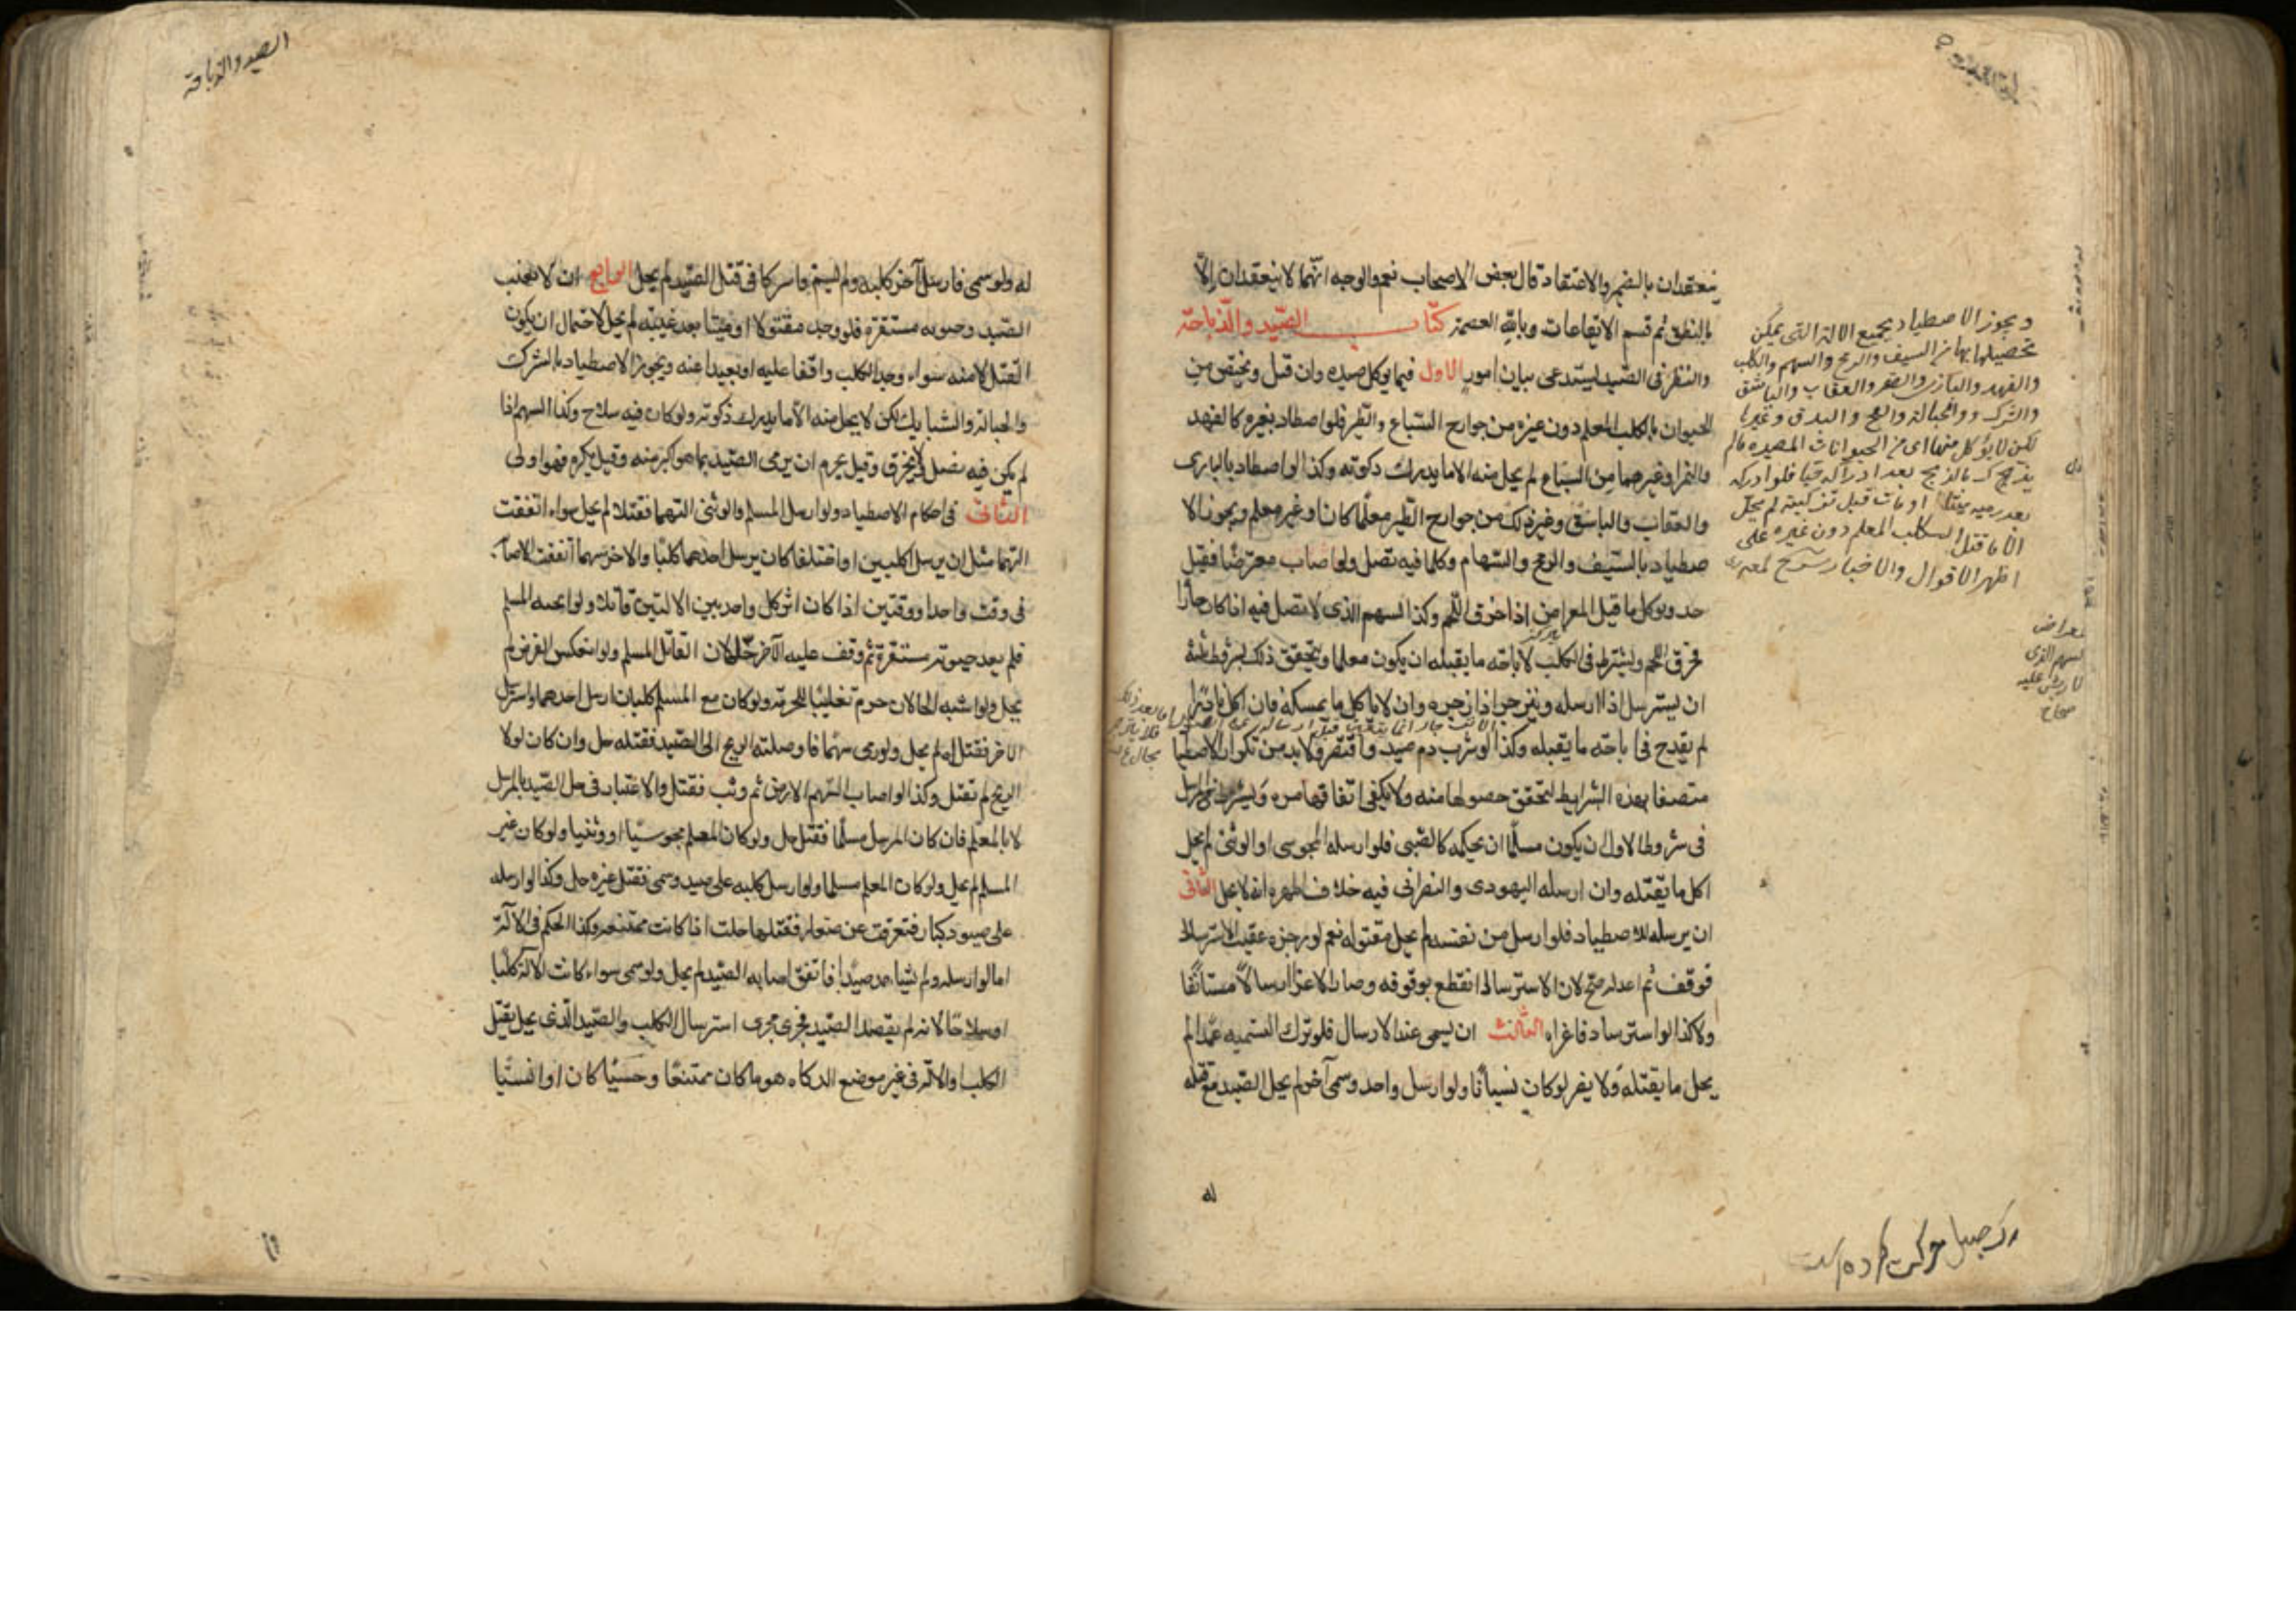 ينعقدان بالضمير والاعتقاد قال بعض الاصحاب نعم والوجه انهما لا ينعقدان الا
بالنطق تم قسم الايقاعات وبالله العصمة كتاب الصيد والذباحة
والنظر فى الصيد يستدعى بيان امور الاول فيما يوكل صيده وان قتل ويختص من
الحيوان بالكلب المعلم دون غيره من جوارح السباع والطير فلو اصطاد بغيره كالفهد
والنمر او غيرهما من السباع لم يحل منه الا ما يدرك ذكوته وكذا لو اصطاد بالبازى
والعقاب والباشق وغير ذلك من جوارح الطير معلما كان او غير معلم ويجوز الا
صطياد بالسيف والرمح والسهام وكلما فيه نصل ولو اصاب معترضا فقتل
حد ويوكل ما قتل المعراض اذا خرق اللحم وكذا السهم الذى لا نصل فيه اذا كان حادا
فخرق اللحم ويشترط فى الكلب لاباحة ما يقتله ان يكون معلما ويتحقق ذلك بشروط ثلثة
ان يسترسل اذا ارسله وينزجر اذا زجره وان لا ياكل ما يمسكه فان اكل نادرا
لم يقدح فى اباحة ما يقتله وكذا لو شرب دم صيد واقتصر ولا بد من تكرار الاصطيا
متصفا بهذه الشرايط ليتحقق حصولها منه ولا يكفى اتفاقها مرة ويشترط فى المرسل
فى شروط الاول ان يكون مسلما ان بحكمه كالصبى فلو ارسله المجوسى او الوثنى لم يحل
اكل ما يقتله وان ارسله اليهودى والنصرانى فيه خلاف اظهره انه لا يحل الثانى
ان يرسله للاصطياد فلو ارسل من نفسه لم يحل مقتوله نعم لو زجره عقيب الاسترسال
فوقف ثم اعداه صح لان الاسترسال انقطع بوقوفه وصار الاغراء ارسالا مستانفا
ولا كذا لو استرسل فاغراه الثالث ان يسمى عند الارسال فلو ترك التسميه عمدا لم
يحل ما يقتله ولا يضر لو كان نسيانا ولو ارسل واحد وسمى آخر لم يحل الصيد مع قتله
له
ويجوز الاصطياد بجميع الالة التى يمكن
تحصيلها بها من السيف والرمح والسهم والكلب
والفهد والبازى والصقر والعقاب والباشق
والشرك والحبالة والفخ والبندق وغيرها
لكن لا يؤكل منها اى من الحيوانات المصيده مالم
يذبح بعد ادراكه حيا فلو ادركه
بعد رميه ميتا او مات قبل تذكيته لم يحل
الا ما قتله الكلب المعلم دون غيره على
اظهر الاقوال والاخبار
معراض
السهم الذى
لا ريش عليه
صحاح
الصيد والذباحة
له ولو سمى فارسل آخر كلبه ولم يسم واشتركا فى قتل الصيد لم يحل الرابع ان لا يغيب
الصيد وحيوته مستقرة فلو وجد مقتولا او ميتا بعد غيبته لم يحل لاحتمال ان يكون
القتل لا منه سواء وجد الكلب واقفا عليه او بعيدا عنه ويجوز الاصطياد بالشرك
والحبالة والشبابيك لكن لا يحل منه الا ما يدرك ذكوته ولو كان فيه سلاح وكذا السهم اذا
لم يكن فيه نصل لا يخرق وقيل يحرم ان يرمى الصيد بما هو اكبر منه وقيل يكره وهو اولى
الثانى فى احكام الاصطياد ولو ارسل المسلم والوثنى التهما فقتلا لم يحل سواء اتفقت
التهما مثل ان يرسل كلبين او اختلفا كان يرسل احدهما كلبا والاخر سهما اتفقت الاصا
فى وقت واحد او وقتين اذا كان اثر كل واحد من الالتين قاتلا ولو اثخنه المسلم
فلم يعد حيوته مستقرة ثم وقف عليه الآخر حل لان القاتل المسلم ولو انعكس الفرض لم
يحل ولو اشتبه الحالان حرم تغليبا للحرمة ولو كان مع المسلم كلبان ارسل احدهما واسترسل
الآخر فقتلا لم يحل ولو رمى سهما فاوصلته الريح الى الصيد فقتله حل وان كان لولا
الريح لم تقتل وكذا لو اصاب السهم الارض ثم وثب فقتل والاعتبار فى حل الصيد بالمرسل
لا بالمعلم فان كان المرسل مسلما فقتل حل ولو كان المعلم مجوسيا او وثنيا ولو كان غير
المسلم لم يحل ولو كان المعلم مسلما ولو ارسل كلبه على صيد وسمى فقتل غيره حل وكذا لو ارسله
على صيود كبار فتفرقت عن صغار فقتلها حلت اذا كانت ممتنعة وكذا الحكم فى الآلة
اما لو ارسله ولم يشاهد صيدا فاتفق اصابه الصيد لم يحل ولو سمى سواء كانت الآلة كلبا
او سلاحا لانه لم يقصد الصيد فجرى مجرى استرسال الكلب والصيد الذى يحل بقتل
الكلب او الآلة فى غير موضع الذكاه هو ما كان ممتنعا وحشيا كان او انسيا